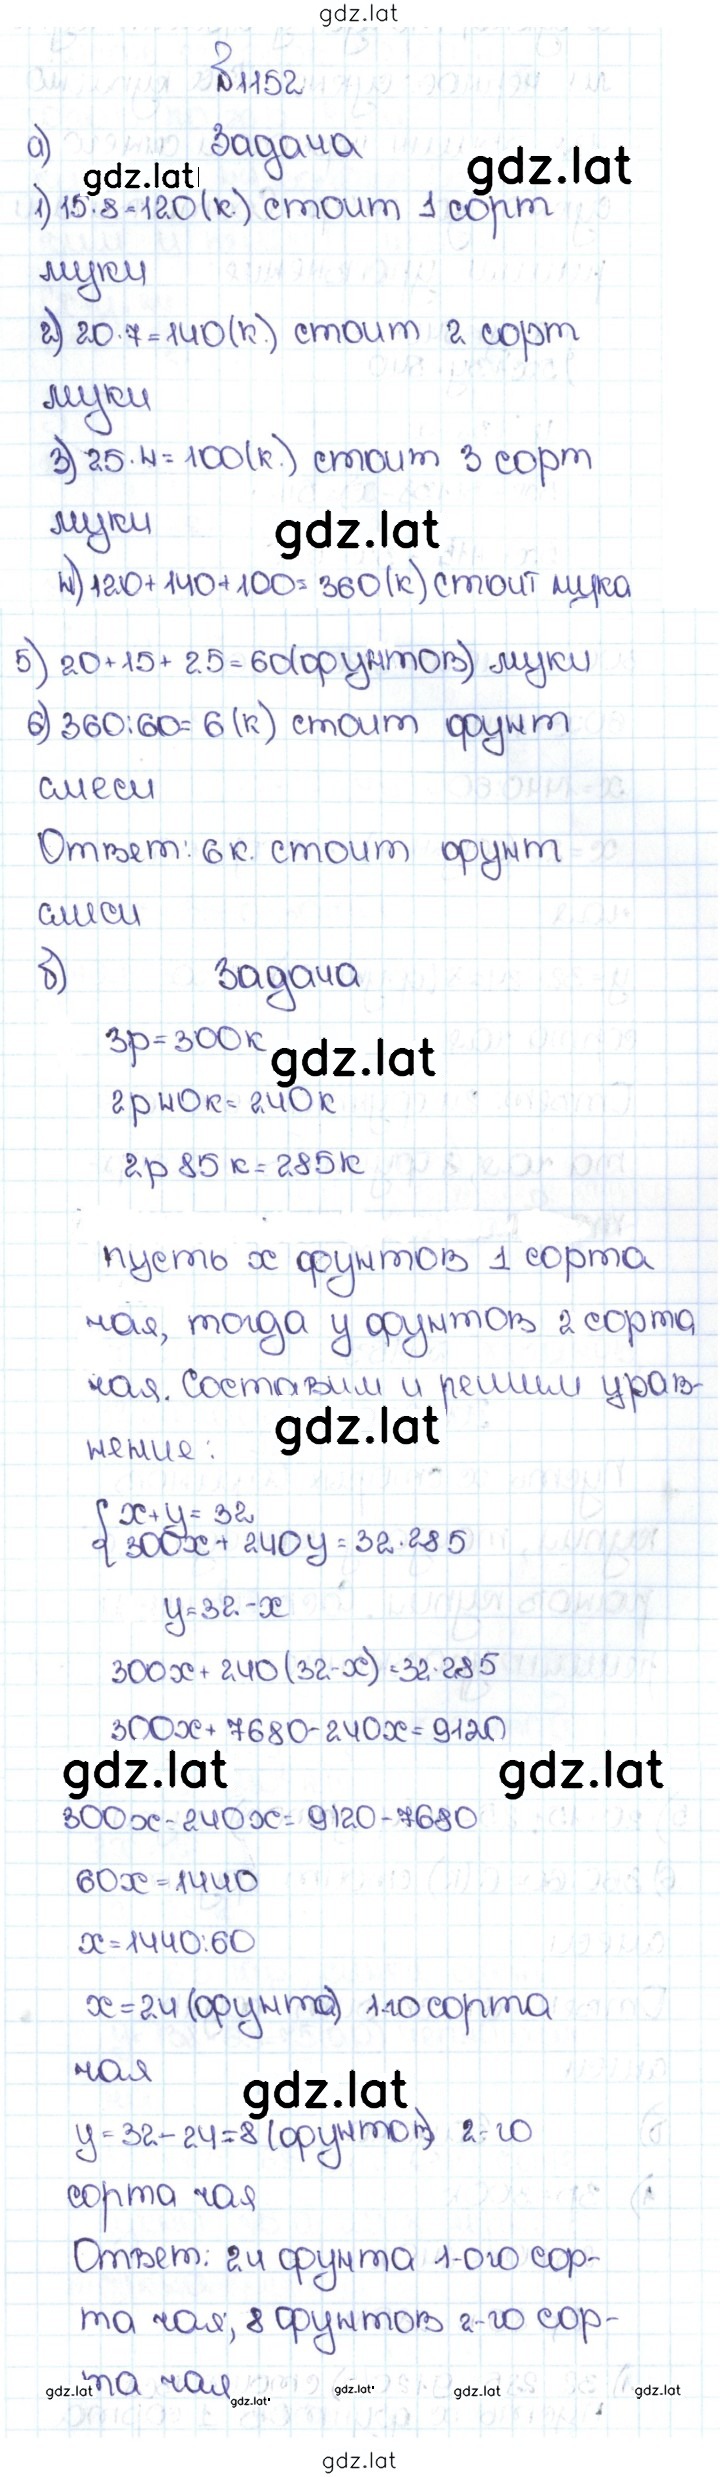 gdz.lat
№1152
а) Задача
gdz.lat gdz.lat
1) 15·8=120(к.) стоит 1 сорт
муки
2) 20·7=140(к.) стоит 2 сорт
муки
3) 25·4=100(к.) стоит 3 сорт
муки gdz.lat
4) 120+140+100=360(к) стоит мука
5) 20+15+25=60(фунтов) муки
6) 360:60=6(к) стоит фунт
смеси
Ответ: 6к. стоит фунт
смеси
б) Задача
3р=300к
gdz.lat
2р40к=240к
2р 85к=285к
пусть x фунтов 1 сорта
чая, тогда y фунтов 2 сорта
чая. Составим и решим урав-
gdz.lat
нение:
{ x+y=32
300x+240y=32·285
y=32-x
300x+240(32-x)=32·285
300x+7680-240x=9120
gdz.lat gdz.lat
300x-240x=9120-7680
60x=1440
x=1440:60
x=24(фунта) 1-го сорта
чая
gdz.lat
y=32-24=8(фунтов) 2-го
сорта чая
Ответ: 24 фунта 1-ого сор-
та чая, 8 фунтов 2-го сор-
та чая
gdz.lat gdz.lat gdz.lat gdz.lat gdz.lat
gdz.lat